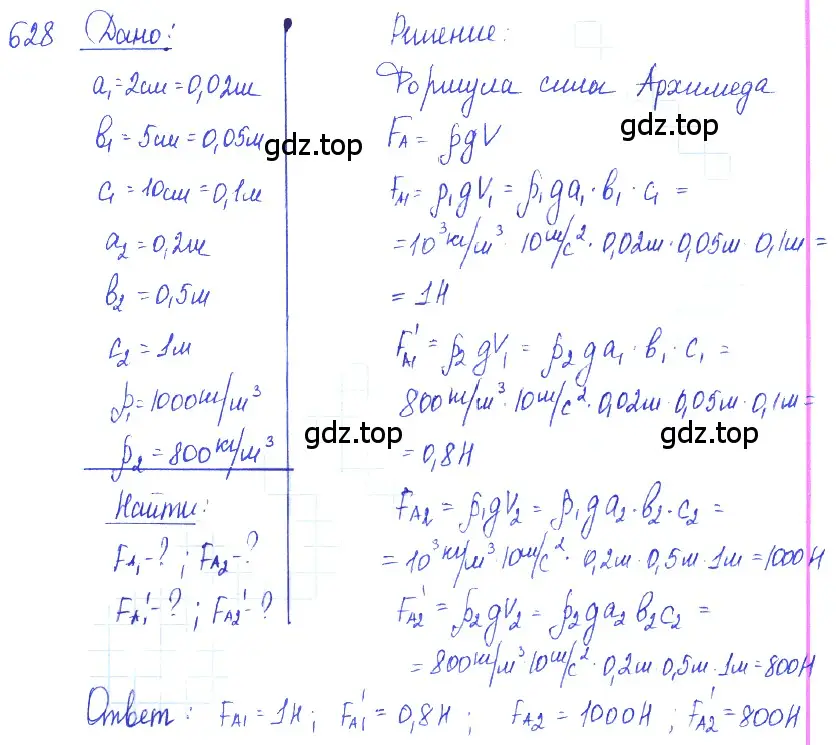 628 Дано:
a₁=2см=0,02м
b₁=5см=0,05м
c₁=10см=0,1м
a₂=0,2м
b₂=0,5м
c₂=1м
ρ₁=1000кг/м³
ρ₂=800кг/м³
Найти:
F_A₁-?; F_A₂-?
F_A₁'-?; F_A₂'-?
Решение:
Формула силы Архимеда
F_A = ρgV
F_A1=ρ₁gV₁=ρ₁ga₁·b₁·c₁=
=10³кг/м³·10м/с²·0,02м·0,05м·0,1м=
=1Н
F_A1'=ρ₂gV₁=ρ₂ga₁·b₁·c₁=
800кг/м³·10м/с²·0,02м·0,05м·0,1м=
=0,8Н
F_A2=ρ₁gV₂=ρ₁ga₂·b₂·c₂=
=10³кг/м³10м/с²·0,2м·0,5м·1м=1000Н
F_A2'=ρ₂gV₂=ρ₂ga₂b₂c₂=
=800кг/м³10м/с²·0,2м0,5м·1м=800Н
Ответ: F_A1=1Н; F_A1'=0,8Н; F_A2=1000Н; F_A2'=800Н
gdz.top
gdz.top
gdz.top
gdz.top